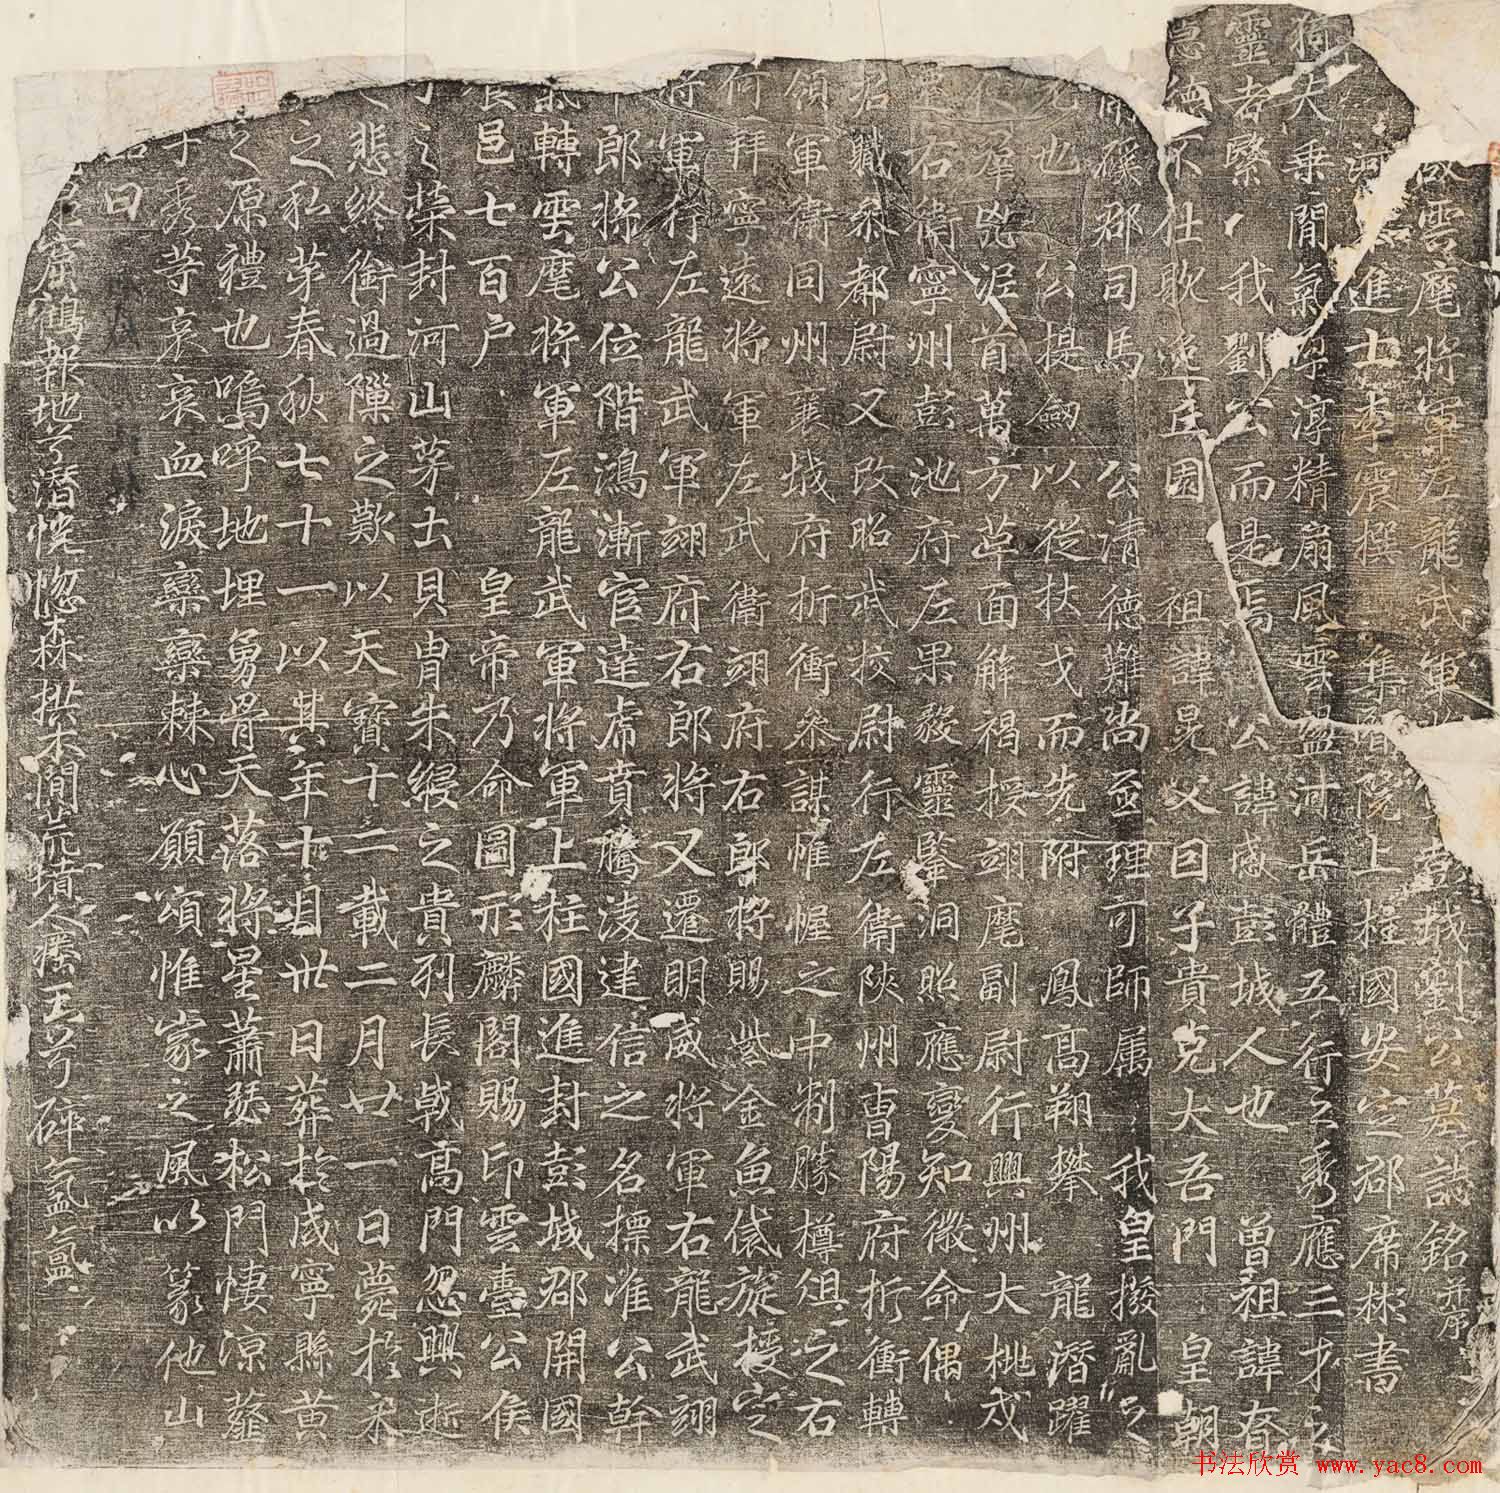 故雲麾將軍左龍武軍將軍彭城劉公墓誌銘并序
河 進士李震撰 集賢院上柱國安定郡席彬書
矢乘閒氣 淳精扇風雲 岳體五行之秀應三才之
靈者緊我劉公而是焉 公諱感彭城人也 曾祖諱眘
德不仕耿逸丘園 祖諱晃父曰子貴克大吾門 皇朝
磎郡司馬 公清德難尚至理可師属我皇撥亂之
也 公提劔以從扶戈而先附鳳高翔攀龍潛躍
氛泥首萬方革面解褐授翊麾副尉行興州大桃戍
遷右衛寧州彭池府左果毅靈鑒洞照應變知微命偶
君職叅都尉又改昭武校尉行左衛陝州曹陽府折衝轉
領軍衛同州襄城府折衝叅謀惟幄之中制勝樽俎之右
何拜寧遠將軍左武衛翊府右郎將賜紫金魚袋旋授定
將軍行左龍武軍翊府右郎將又遷明威將軍右龍武翊
郎將公位階鴻漸官達虎賁騰淩建信之名標准公幹
轉雲麾將軍左龍武軍將軍上柱國進封彭城郡開國
食邑七百户 皇帝乃命圖形麟閣賜印雲臺公侯
之榮封河山茅土貝胄朱綬之貴列長戟高門忽興逝
之悲終銜過隟之歎以天寶十二載二月廿一日薨於
之私苐春秋七十一以其年十月卅日葬於咸寧縣黄
之原禮也嗚呼地埋勇骨天落將星蕭瑟松門悽涼薤
子秀等哀哀血淚欒欒棘心願頌惟家之風以篆他山
曰
鶴報地兮潛恍惚森拱木間荒墳人瘞玉兮碎氤氲
书法欣赏 www.yac8.com